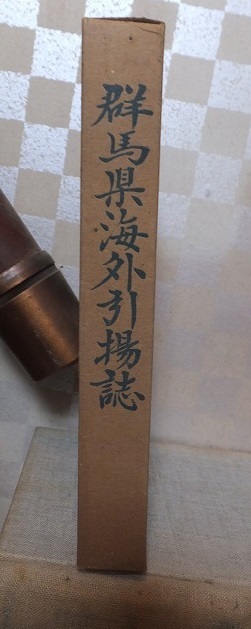 群馬県海外引揚誌